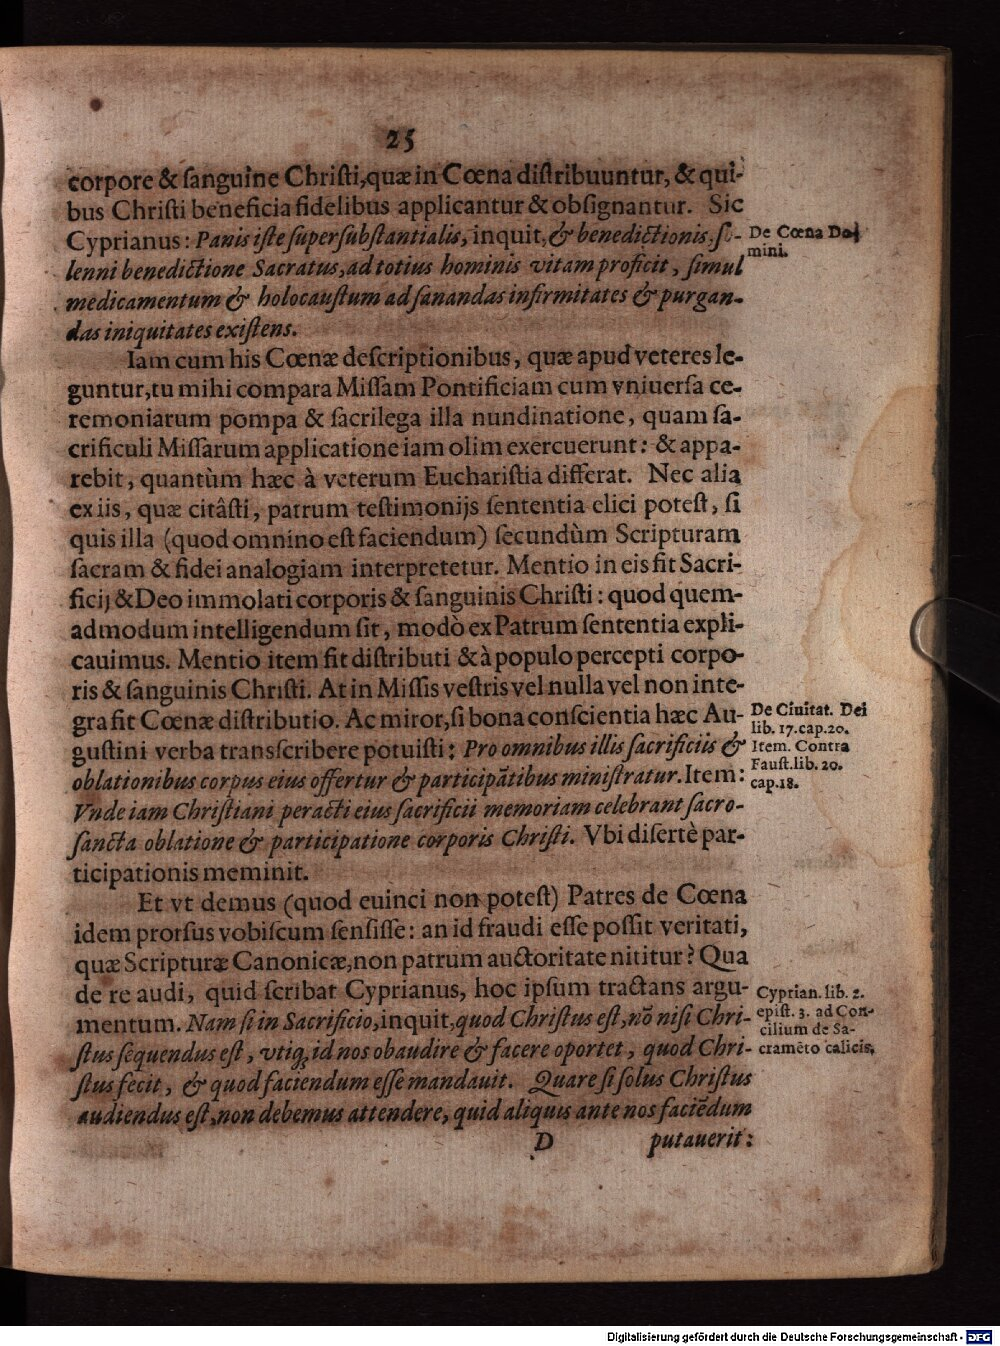 25
corpore & ſanguine Chriſti, quæ in Cœna diſtribuuntur, & qui-
bus Chriſti beneficia fidelibus applicantur & obſignantur. Sic
Cyprianus: Panis iſte ſuperſubſtantialis, inquit, & benedictionis, ſo-
lenni benedictione Sacratus, ad totius hominis vitam proficit, ſimul
medicamentum & holocauſtum ad ſanandas infirmitates & purgan-
das iniquitates exiſtens.
De Cœna Do-
mini.
Iam cum his Cœnæ deſcriptionibus, quæ apud veteres le-
guntur, tu mihi compara Miſſam Pontificiam cum vniuerſa ce-
remoniarum pompa & ſacrilega illa nundinatione, quam ſa-
crificuli Miſſarum applicatione iam olim exercuerunt: & appa-
rebit, quantùm hæc à veterum Euchariſtia differat. Nec alia
ex iis, quæ citâſti, patrum teſtimonijs ſententia elici poteſt, ſi
quis illa (quod omnino eſt faciendum) ſecundùm Scripturam
ſacram & fidei analogiam interpretetur. Mentio in eis fit Sacri-
ficij & Deo immolati corporis & ſanguinis Chriſti: quod quem-
admodum intelligendum ſit, modò ex Patrum ſententia expli-
cauimus. Mentio item fit diſtributi & à populo percepti corpo-
ris & ſanguinis Chriſti. At in Miſſis veſtris vel nulla vel non inte-
gra fit Cœnæ diſtributio. Ac miror, ſi bona conſcientia hæc Au-
guſtini verba transſcribere potuiſti: Pro omnibus illis ſacrificiis &
oblationibus corpus eius offertur & participātibus miniſtratur. Item:
Vnde iam Chriſtiani peracti eius ſacrificii memoriam celebrant ſacro-
ſancta oblatione & participatione corporis Chriſti. Vbi diſertè par-
ticipationis meminit.
De Ciuitat. Dei
lib. 17. cap. 20.
Item. Contra
Fauſt. lib. 20.
cap. 18.
Et vt demus (quod euinci non poteſt) Patres de Cœna
idem prorſus vobiſcum ſenſiſſe: an id fraudi eſſe poſſit veritati,
quæ Scripturæ Canonicæ, non patrum auctoritate nititur? Qua
de re audi, quid ſcribat Cyprianus, hoc ipſum tractans argu-
mentum. Nam ſi in Sacrificio, inquit, quod Chriſtus eſt, nō niſi Chri-
ſtus ſequendus eſt, vtiq́; id nos obaudire & facere oportet, quod Chri-
ſtus fecit, & quod faciendum eſſe mandauit. Quare ſi ſolus Chriſtus
audiendus eſt, non debemus attendere, quid aliquis ante nos faciēdum
Cyprian. lib. 2.
epiſt. 3. ad Con-
cilium de Sa-
cramēto calicis.
D putauerit:
Digitalisierung gefördert durch die Deutsche Forschungsgemeinschaft - DFG